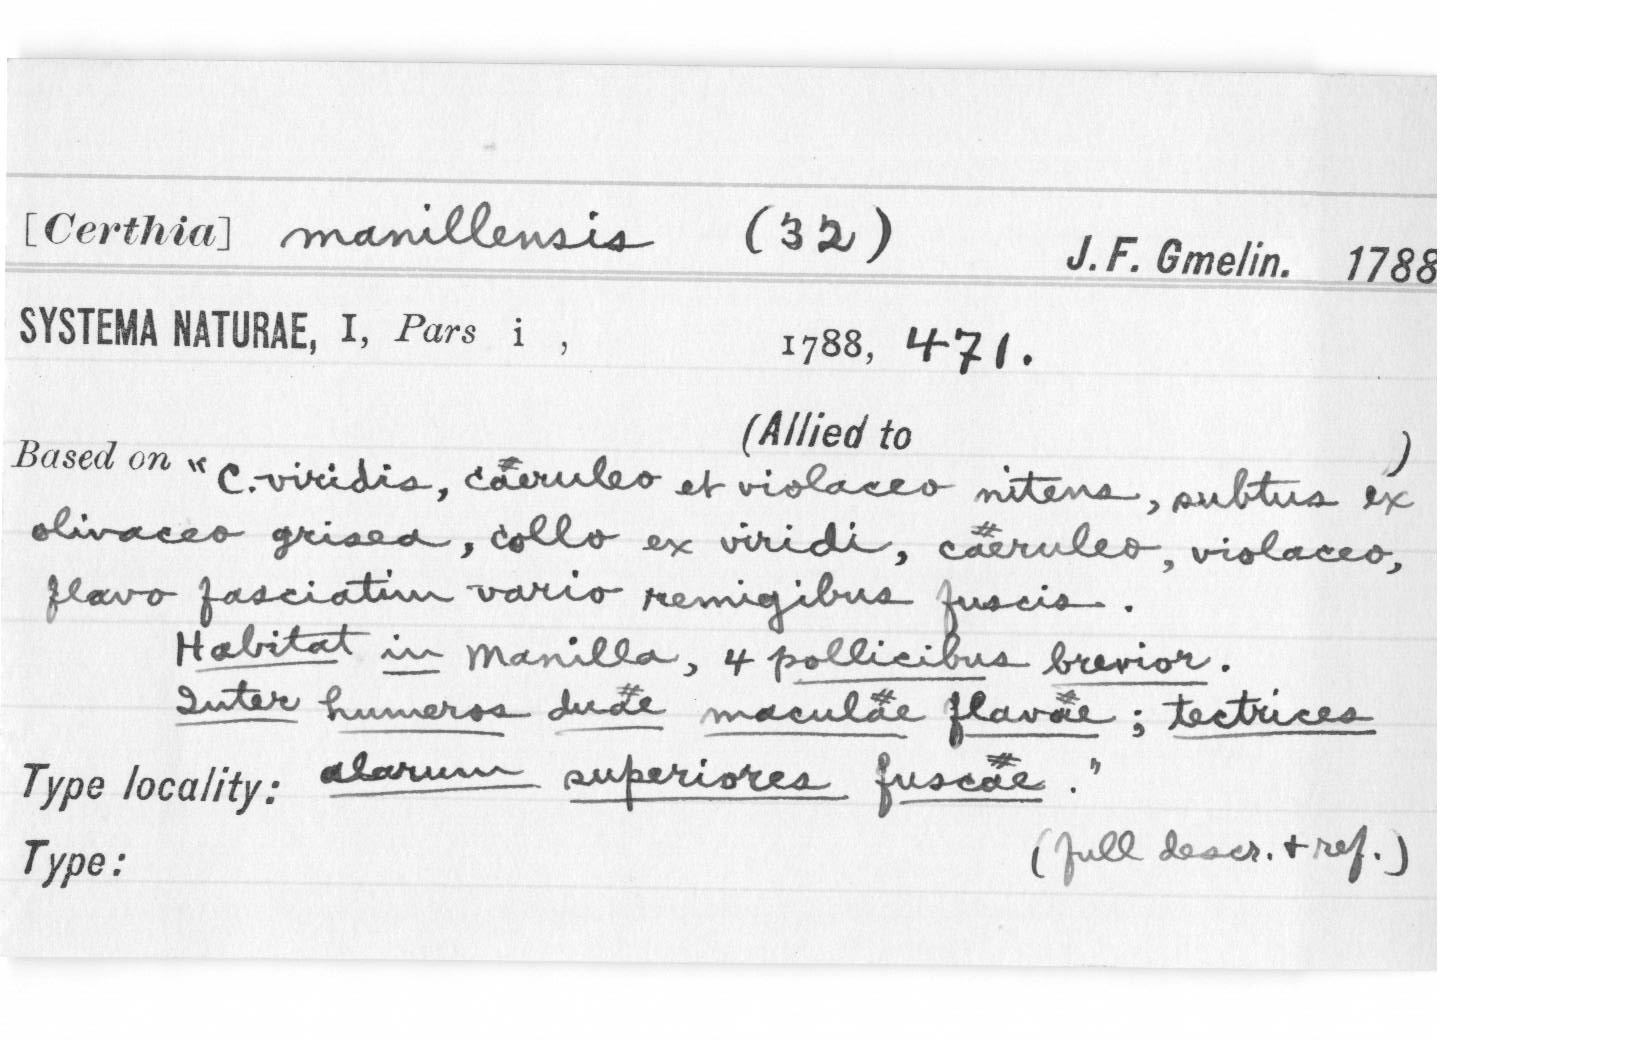 [Certhia] manillensis (32) J. F. Gmelin. 1788
SYSTEMA NATURAE, I, Pars i , 1788, 471.
(Allied to )
Based on "C. viridis, caeruleo et violaceo nitens, subtus ex
olivaceo grisea, collo ex viridi, caeruleo, violaceo,
flavo fasciatim vario remigibus fuscis.
Habitat in Manilla, 4 pollicibus brevior.
Inter humeros duae maculae flavae; tectrices
Type locality: alarum superiores fuscae."
Type: (full descr. + ref.)